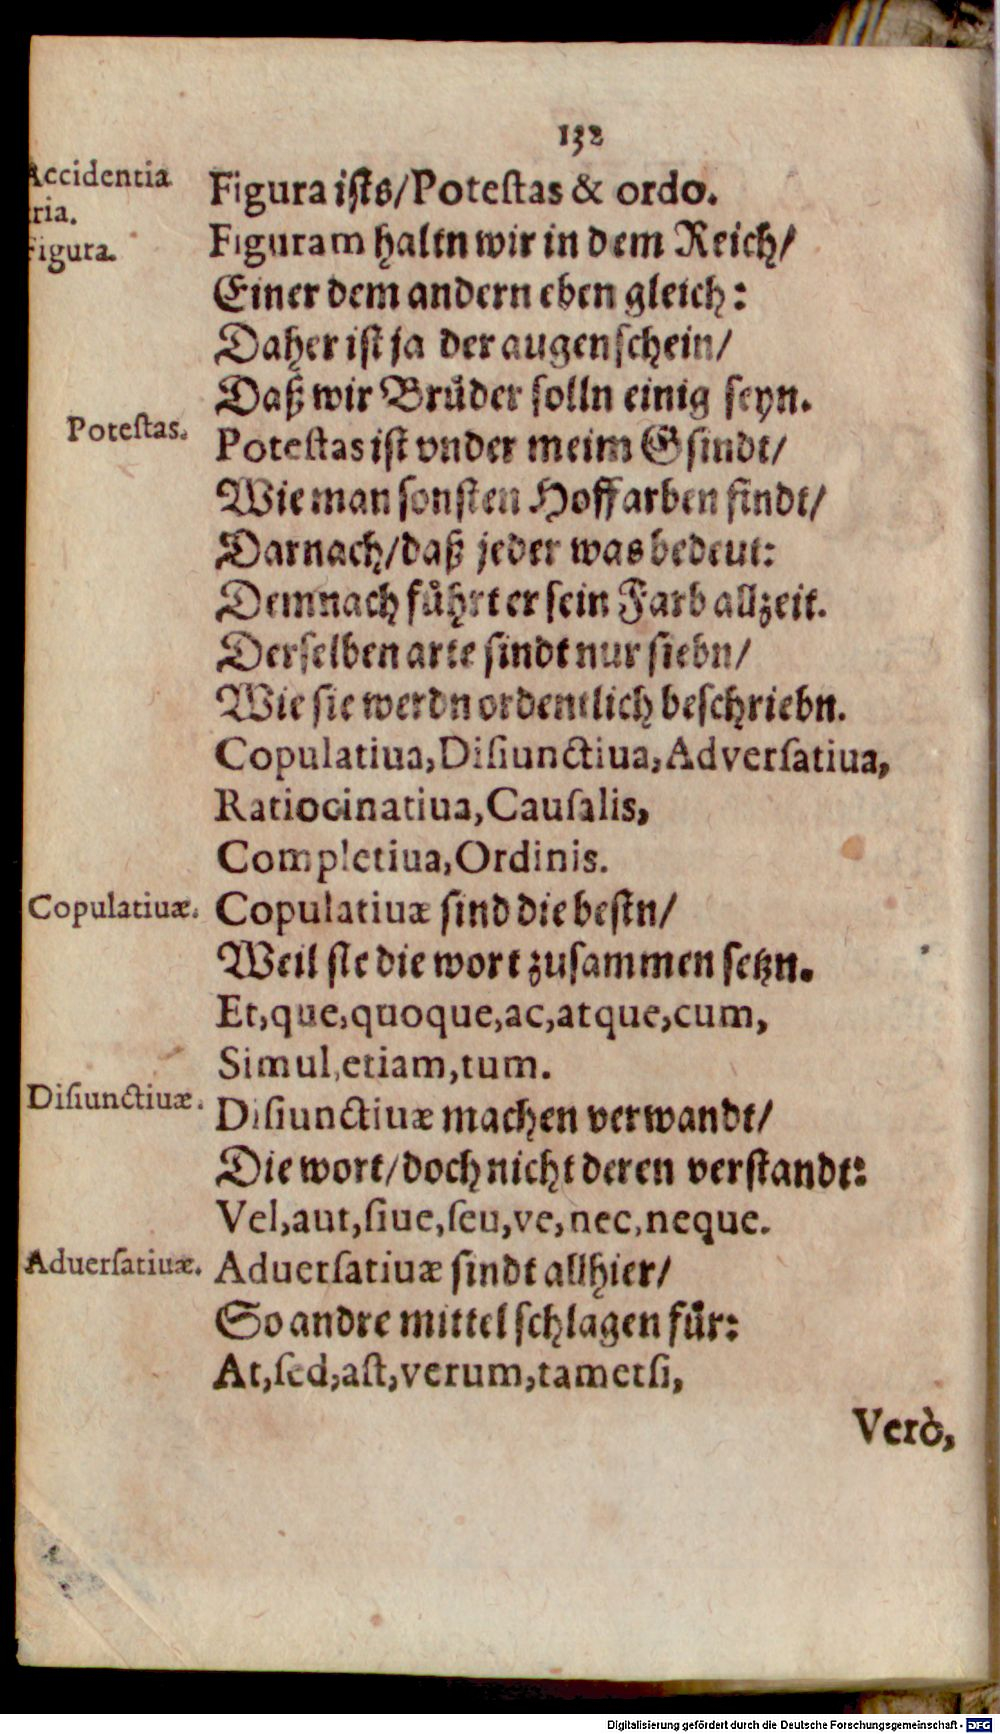 132
Accidentia
tria.
Figura.
Figura iſts/Poteſtas & ordo.
Figuram haltn wir in dem Reich/
Einer dem andern eben gleich:
Daher iſt ja der augenſchein/
Daß wir Bruͤder ſolln einig ſeyn.
Poteſtas.
Poteſtas iſt vnder meim Gſindt/
Wie man ſonſten Hoffarben findt/
Darnach/daß jeder was bedeut:
Demnach fuͤhrt er ſein Farb allzeit.
Derſelben arte ſindt nur ſiebn/
Wie ſie werdn ordentlich beſchriebn.
Copulatiua, Diſiunctiua, Adverſatiua,
Ratiocinatiua, Cauſalis,
Completiua, Ordinis.
Copulatiuæ.
Copulatiuæ ſind die beſtn/
Weil ſie die wort zuſammen ſetzn.
Et, que, quoque, ac, atque, cum,
Simul, etiam, tum.
Diſiunctiuæ.
Diſiunctiuæ machen verwandt/
Die wort/doch nicht deren verſtandt:
Vel, aut, ſiue, ſeu, ve, nec, neque.
Aduerſatiuæ.
Aduerſatiuæ ſindt allhier/
So andre mittel ſchlagen fuͤr:
At, ſed, aſt, verum, tametſi,
Verò,
Digitalisierung gefördert durch die Deutsche Forschungsgemeinschaft - DFG